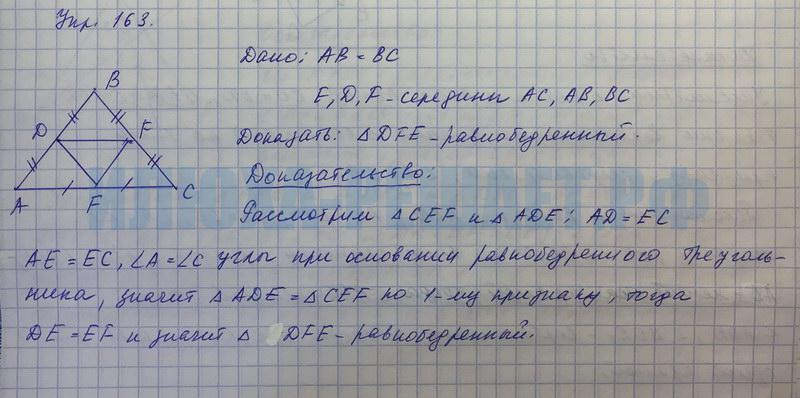 Упр. 163.
Дано: AB = BC
E, D, F - середины AC, AB, BC
Доказать: △DFE - равнобедренный.
Доказательство:
Рассмотрим △CEF и △ADE; AD = EC
AE = EC, ∠A = ∠C углы при основании равнобедренного треуголь-
ника, значит △ADE = △CEF по 1-му признаку, тогда
DE = EF и значит △ DFE - равнобедренный.
B
D
F
A
F
C